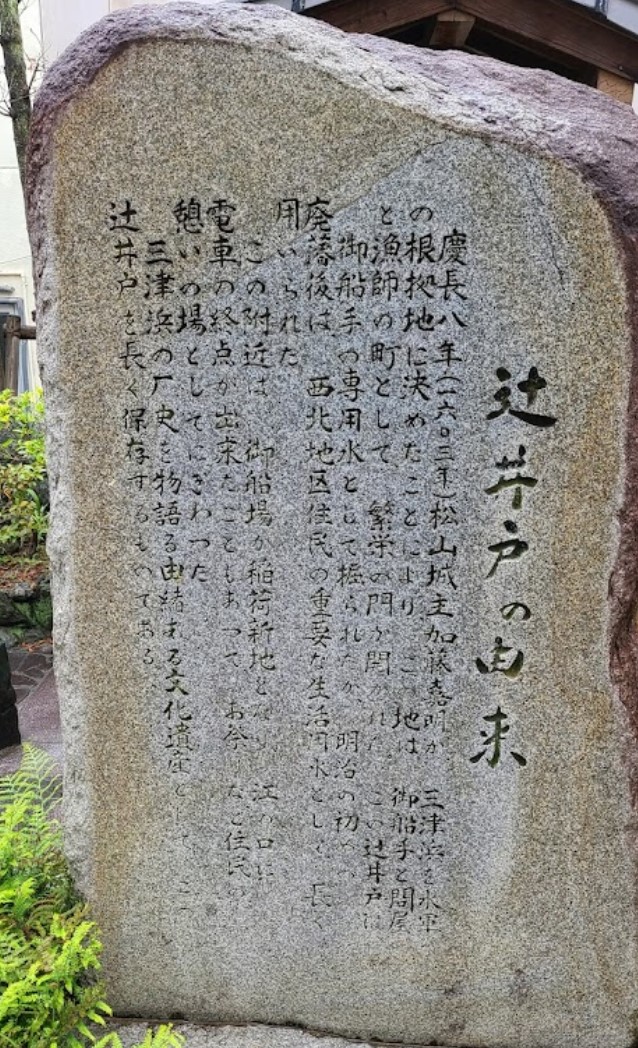 辻井戸の由来
慶長八年(一六〇三年)松山城主加藤嘉明が 三津浜を水軍
の根拠地に決めたことにより この地は 御船手と問屋
と漁師の町として 繁栄の門が開かれた この辻井戸は
御船手の専用水として掘られたが、明治の初めの
廃藩後は 西北地区住民の重要な生活用水として 長く
用いられた
この附近は 御船場が稲荷新地となり 江の口に
電車の終点が出来たこともあって お祭りなど住民の
憩いの場としてにぎわった
三津浜の厂史を物語る由緒ある文化遺産として
辻井戸を長く保存するものである